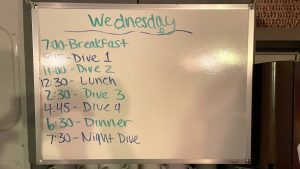 Wednesday
7:00-Breakfast
Dive 1
11:00 - Dive 2
12:30 - Lunch
2:30 - Dive 3
4:45 - Dive 4
6:30 - Dinner
7:30 - Night Dive